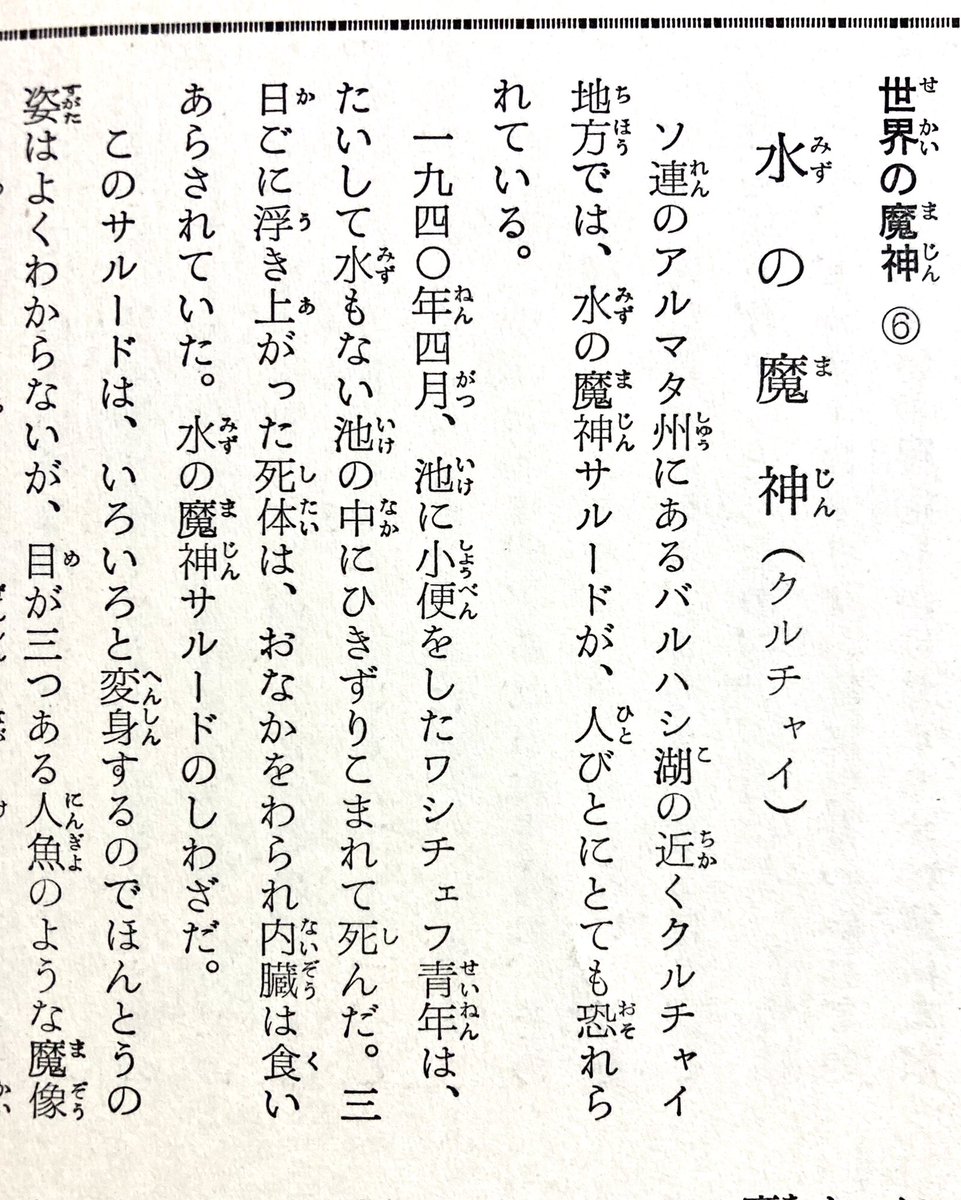 世界の魔神 ⑥
水の魔神（クルチャイ）
ソ連のアルマタ州にあるバルハシ湖の近くクルチャイ
地方では、水の魔神サルードが、人びとにとても恐れら
れている。
一九四〇年四月、池に小便をしたワシチェフ青年は、
たいして水もない池の中にひきずりこまれて死んだ。三
日ごに浮き上がった死体は、おなかをわられ内臓は食い
あらされていた。水の魔神サルードのしわざだ。
このサルードは、いろいろと変身するのでほんとうの
姿はよくわからないが、目が三つある人魚のような魔像